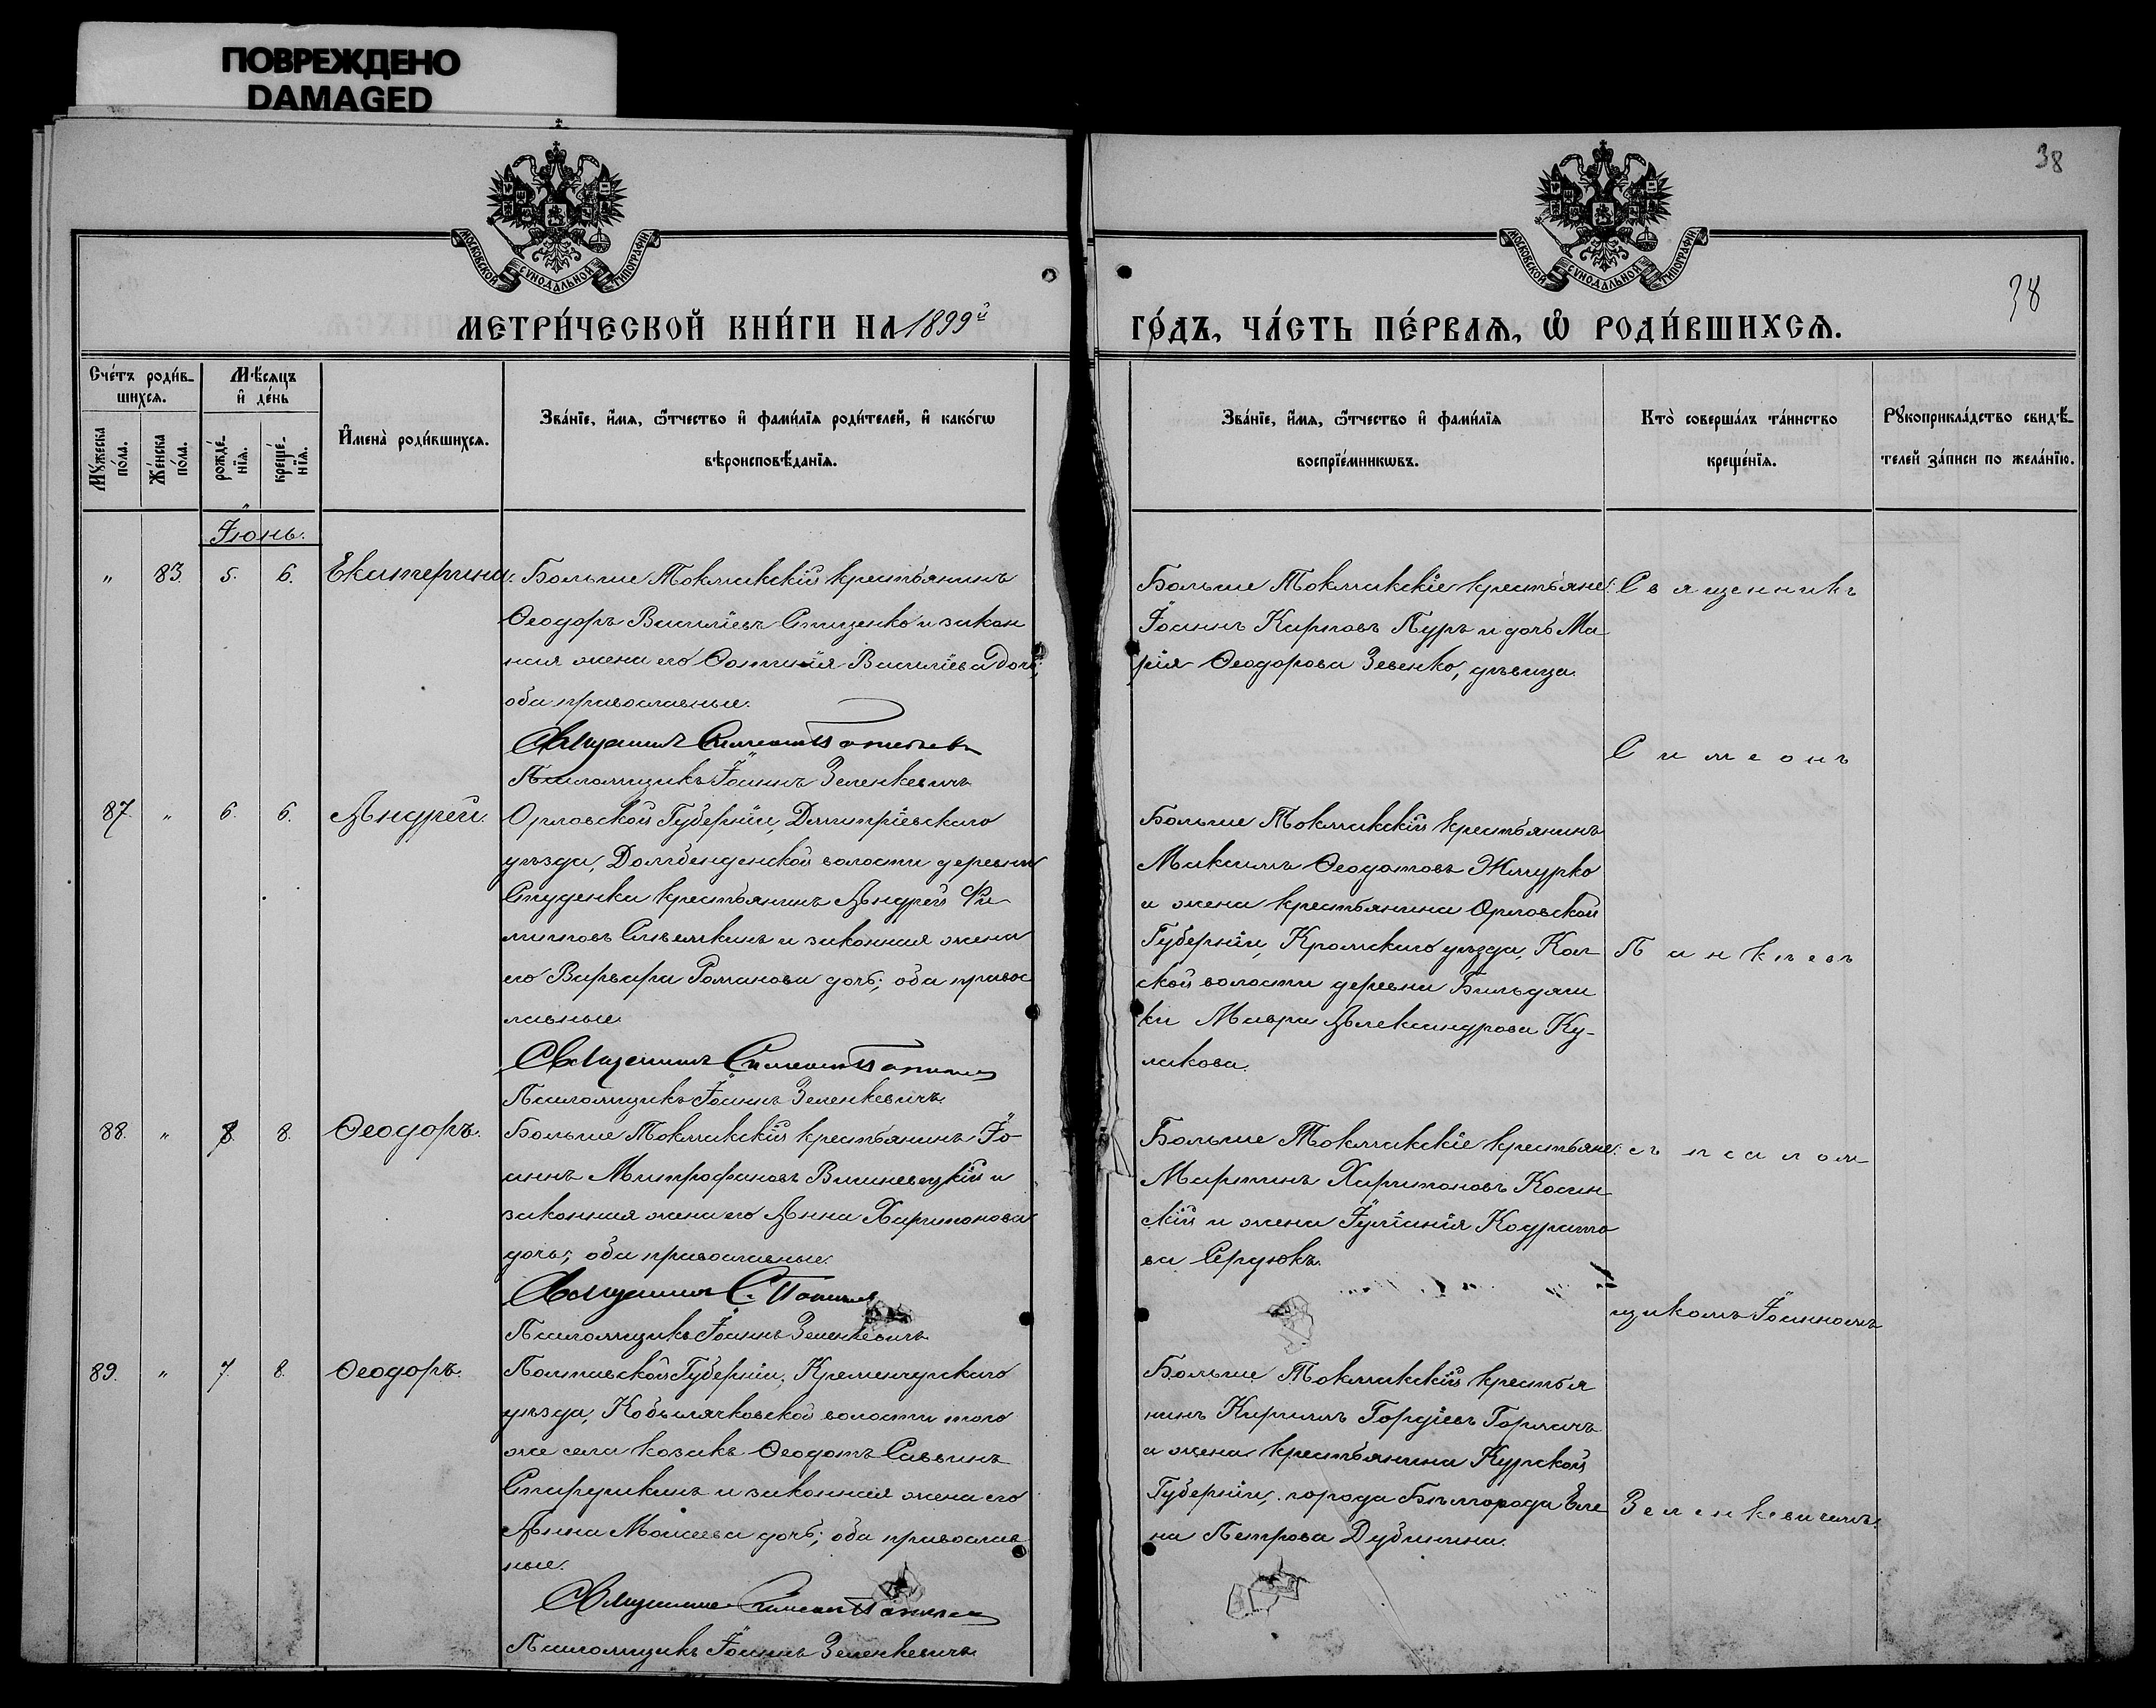 ПОВРЕЖДЕНО
DAMAGED
38
МОСКОВСКОЙ СѴНОДАЛЬНОЙ ТИПОГРАФІИ
МОСКОВСКОЙ СѴНОДАЛЬНОЙ ТИПОГРАФІИ
38
МЕТРИ́ЧЕСКОЙ КНИ́ГИ НА 1899й
ГО́ДЪ, ЧА́СТЬ ПЕ́РВАѦ, Ѡ҆ РОДИ́ВШИХСѦ.
Сче́тъ роди́в-
шихсѧ.
Мꙋжеска по́ла.
Же́нска по́ла.
Мѣ́сѧцъ
и҆ де́нь
рожде́-
нїѧ.
креще́-
нїѧ.
И҆мена̀ роди́вшихсѧ.
Зва́нїе, и҆́мѧ, ѻ҆́тчество и҆ фами́лїѧ роди́телей, и҆ како́гѡ
вѣроисповѣ́данїѧ.
Зва́нїе, и҆́мѧ, ѻ҆́тчество и҆ фами́лїѧ
воспрїе́мникѡвъ.
Кто̀ соверша́лъ та́инство
креще́нїѧ.
Рꙋкоприкла́дство свидѣ́-
телей за́писи по жела́нїю.
Іюнь.
" 83. 5. 6. Екатерина.
Больше Токмакскій крестьянинъ
Ѳеодоръ Василіевъ Стиценко и закон
ная жена его Фотинія Василіева дочь;
оба православные.
Священникъ Симеонъ Панкѣевъ
Псаломщикъ Іоаннъ Зеленкевичъ
Больше Токмакскіе крестьяне:
Іоаннъ Карповъ Пуръ и дочь Ма
рія Ѳеодорова Зевенко, дѣвица.
87. " 6. 6. Андрей.
Орловской Губерніи, Дмитріевскаго
уѣзда, волости деревни
Студенка крестьянинъ Андрей Фи
липповъ и законная жена
его Варвара Романова дочь; оба правос
лавные.
Священникъ Симеонъ Панкѣевъ
Псаломщикъ Іоаннъ Зеленкевичъ.
Больше Токмакскій крестьянинъ
Максимъ Ѳеодотовъ Жмурко
и жена крестьянина Орловской
Губерніи, Кромскаго уѣзда,
ской волости деревни
ки Мавра Александрова Ку-
ликова.
88. " 8. 8. Ѳеодоръ.
Больше Токмакскій крестьянинъ Іо
аннъ Митрофановъ Вишневецкій и
законная жена его Анна Харитонова
дочь; оба православные.
Священникъ С. Панкѣевъ
Псаломщикъ Іоаннъ Зеленкевичъ
Больше Токмакскіе крестьяне:
Мартинъ Харитоновъ Косин
скій и жена Іуліанія Кодрато
ва Сердюкъ.
89. " 7. 8. Ѳеодоръ.
Полтавской Губерніи, Кременчугскаго
уѣзда, Кобылячковской волости того
же села козакъ Ѳеодотъ Саввинъ
Старушкинъ и законная жена его
Анна Моисеева дочь; оба православ
ные.
Священникъ Симеонъ Панкѣевъ
Псаломщикъ Іоаннъ Зеленкевичъ
Больше Токмакскій крестья
нинъ Кириллъ Гордіевъ
и жена крестьянина Курской
Губерніи, города Бѣлгорода Еле
на Петрова Дубинина.
Священникъ
Симеонъ
Панкѣевъ
съ псалом
щикомъ Іоанномъ
Зеленкевичемъ.